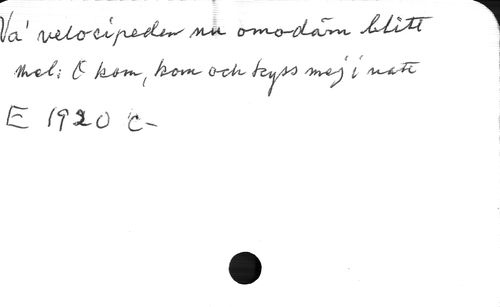 Va' velocipeden nu omodärn blitt
mel: O kom, kom och kyss mej i natt
E 1920 C-